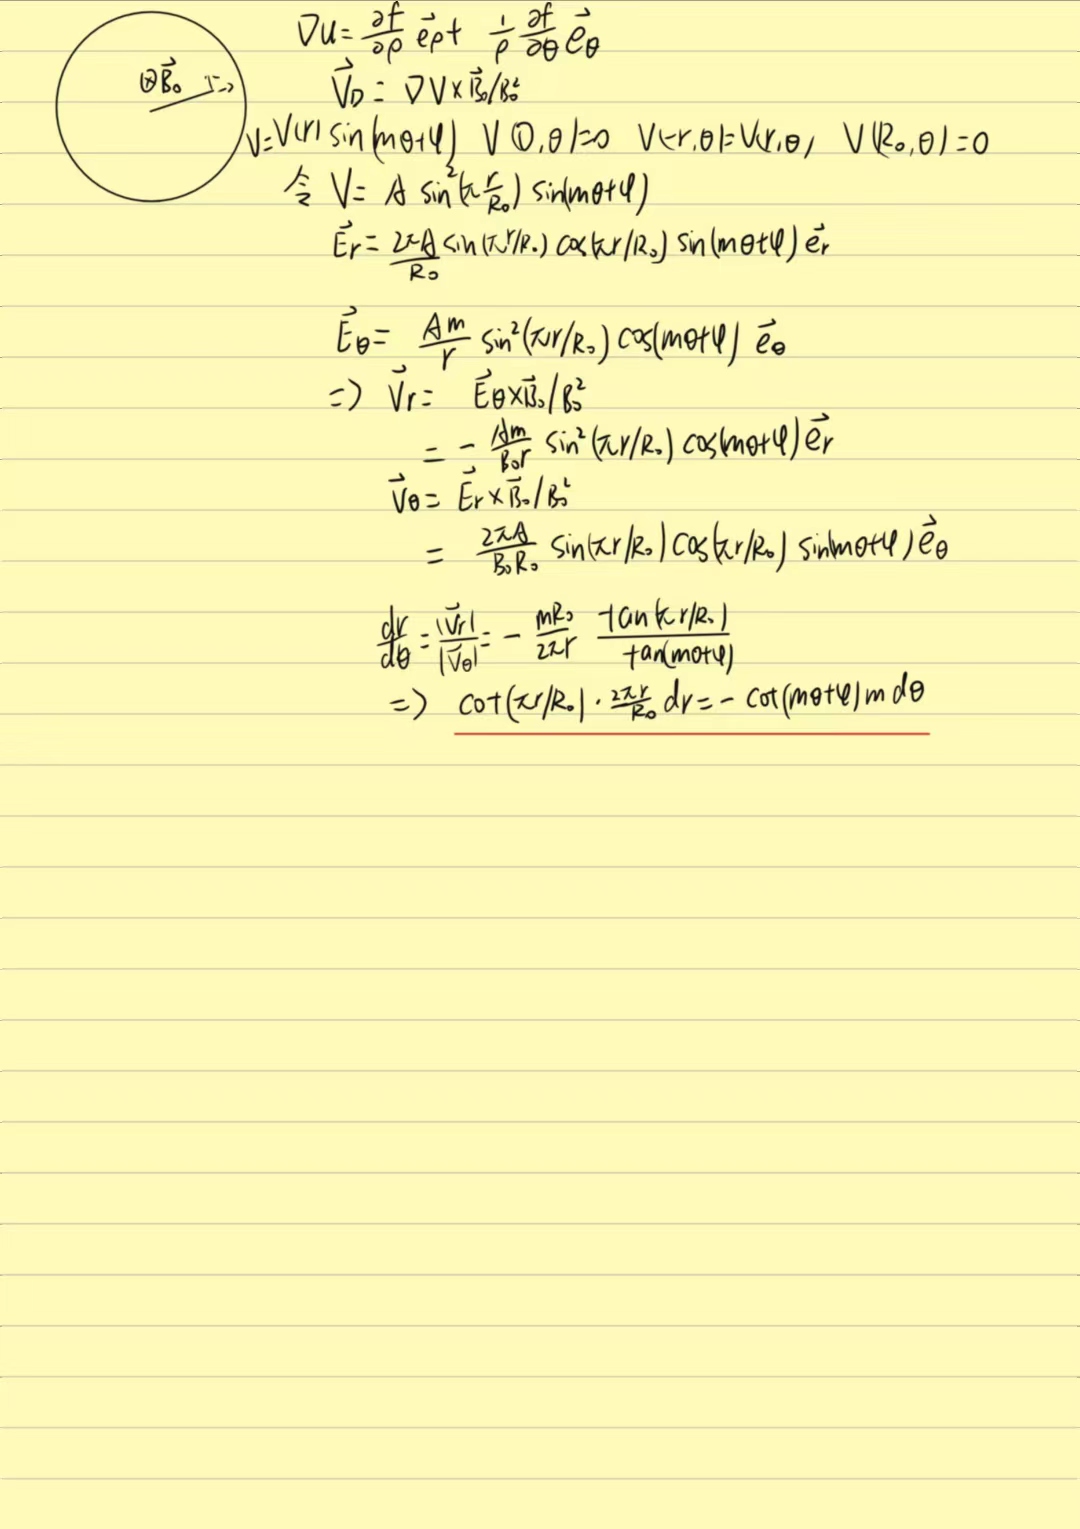 ∇u = ∂f/∂ρ e⃗ρ + 1/ρ ∂f/∂θ e⃗θ
⊗B⃗₀
V⃗D = ∇V×B⃗₀/B₀²
V=V(r) sin(mθ+φ) V(0,θ)=0 V(-r,θ)=V(r,θ), V(R₀,θ)=0
令 V= A sin²(π r/R₀) sin(mθ+φ)
E⃗r = 2πA/R₀ sin(πr/R₀) cos(πr/R₀) sin(mθ+φ) e⃗r
E⃗θ = Am/r sin²(πr/R₀) cos(mθ+φ) e⃗θ
=> V⃗r = E⃗θ×B⃗₀/B₀²
= - Am/B₀r sin²(πr/R₀) cos(mθ+φ) e⃗r
V⃗θ = E⃗r×B⃗₀/B₀²
= 2πA/B₀R₀ sin(πr/R₀) cos(πr/R₀) sin(mθ+φ) e⃗θ
dr/dθ = |V⃗r|/|V⃗θ| = - mR₀/2πr tan(πr/R₀)/tan(mθ+φ)
=> cot(πr/R₀) · 2πr/R₀ dr = - cot(mθ+φ) m dθ